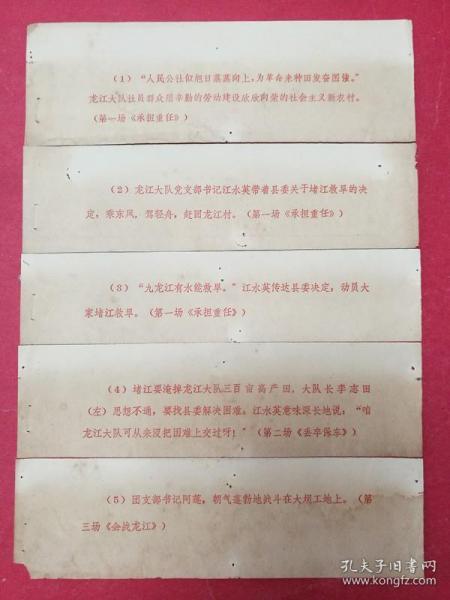 (1) “人民公社似旭日蒸蒸向上,为革命来种田发奋图强。”
龙江大队社员群众用辛勤的劳动建设欣欣向荣的社会主义新农村。
(第一场《承担重任》)
(2) 龙江大队党支部书记江水英带着县委关于堵江救旱的决
定,乘东风,驾轻舟,赶回龙江村。(第一场《承担重任》)
(3) “九龙江有水能救旱。”江水英传达县委决定,动员大
家堵江救旱。(第一场《承担重任》)
(4) 堵江要淹掉龙江大队三百亩高产田,大队长李志田
(左)思想不通,要找县委解决困难。江水英意味深长地说:“咱
龙江大队可从来没把困难上交过呀!”(第二场《丢卒保车》)
(5) 团支部书记阿莲,朝气蓬勃地战斗在大坝工地上。(第
三场《会战龙江》)
孔夫子旧书网
www.kongfz.com